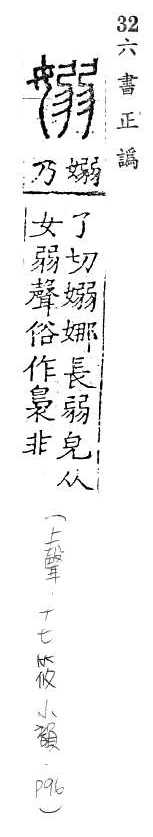 32六書正譌
嫋
嫋乃
了切嫋娜長弱皃从
女弱聲俗作裊非
(上聲.十七筱小韻.P96)